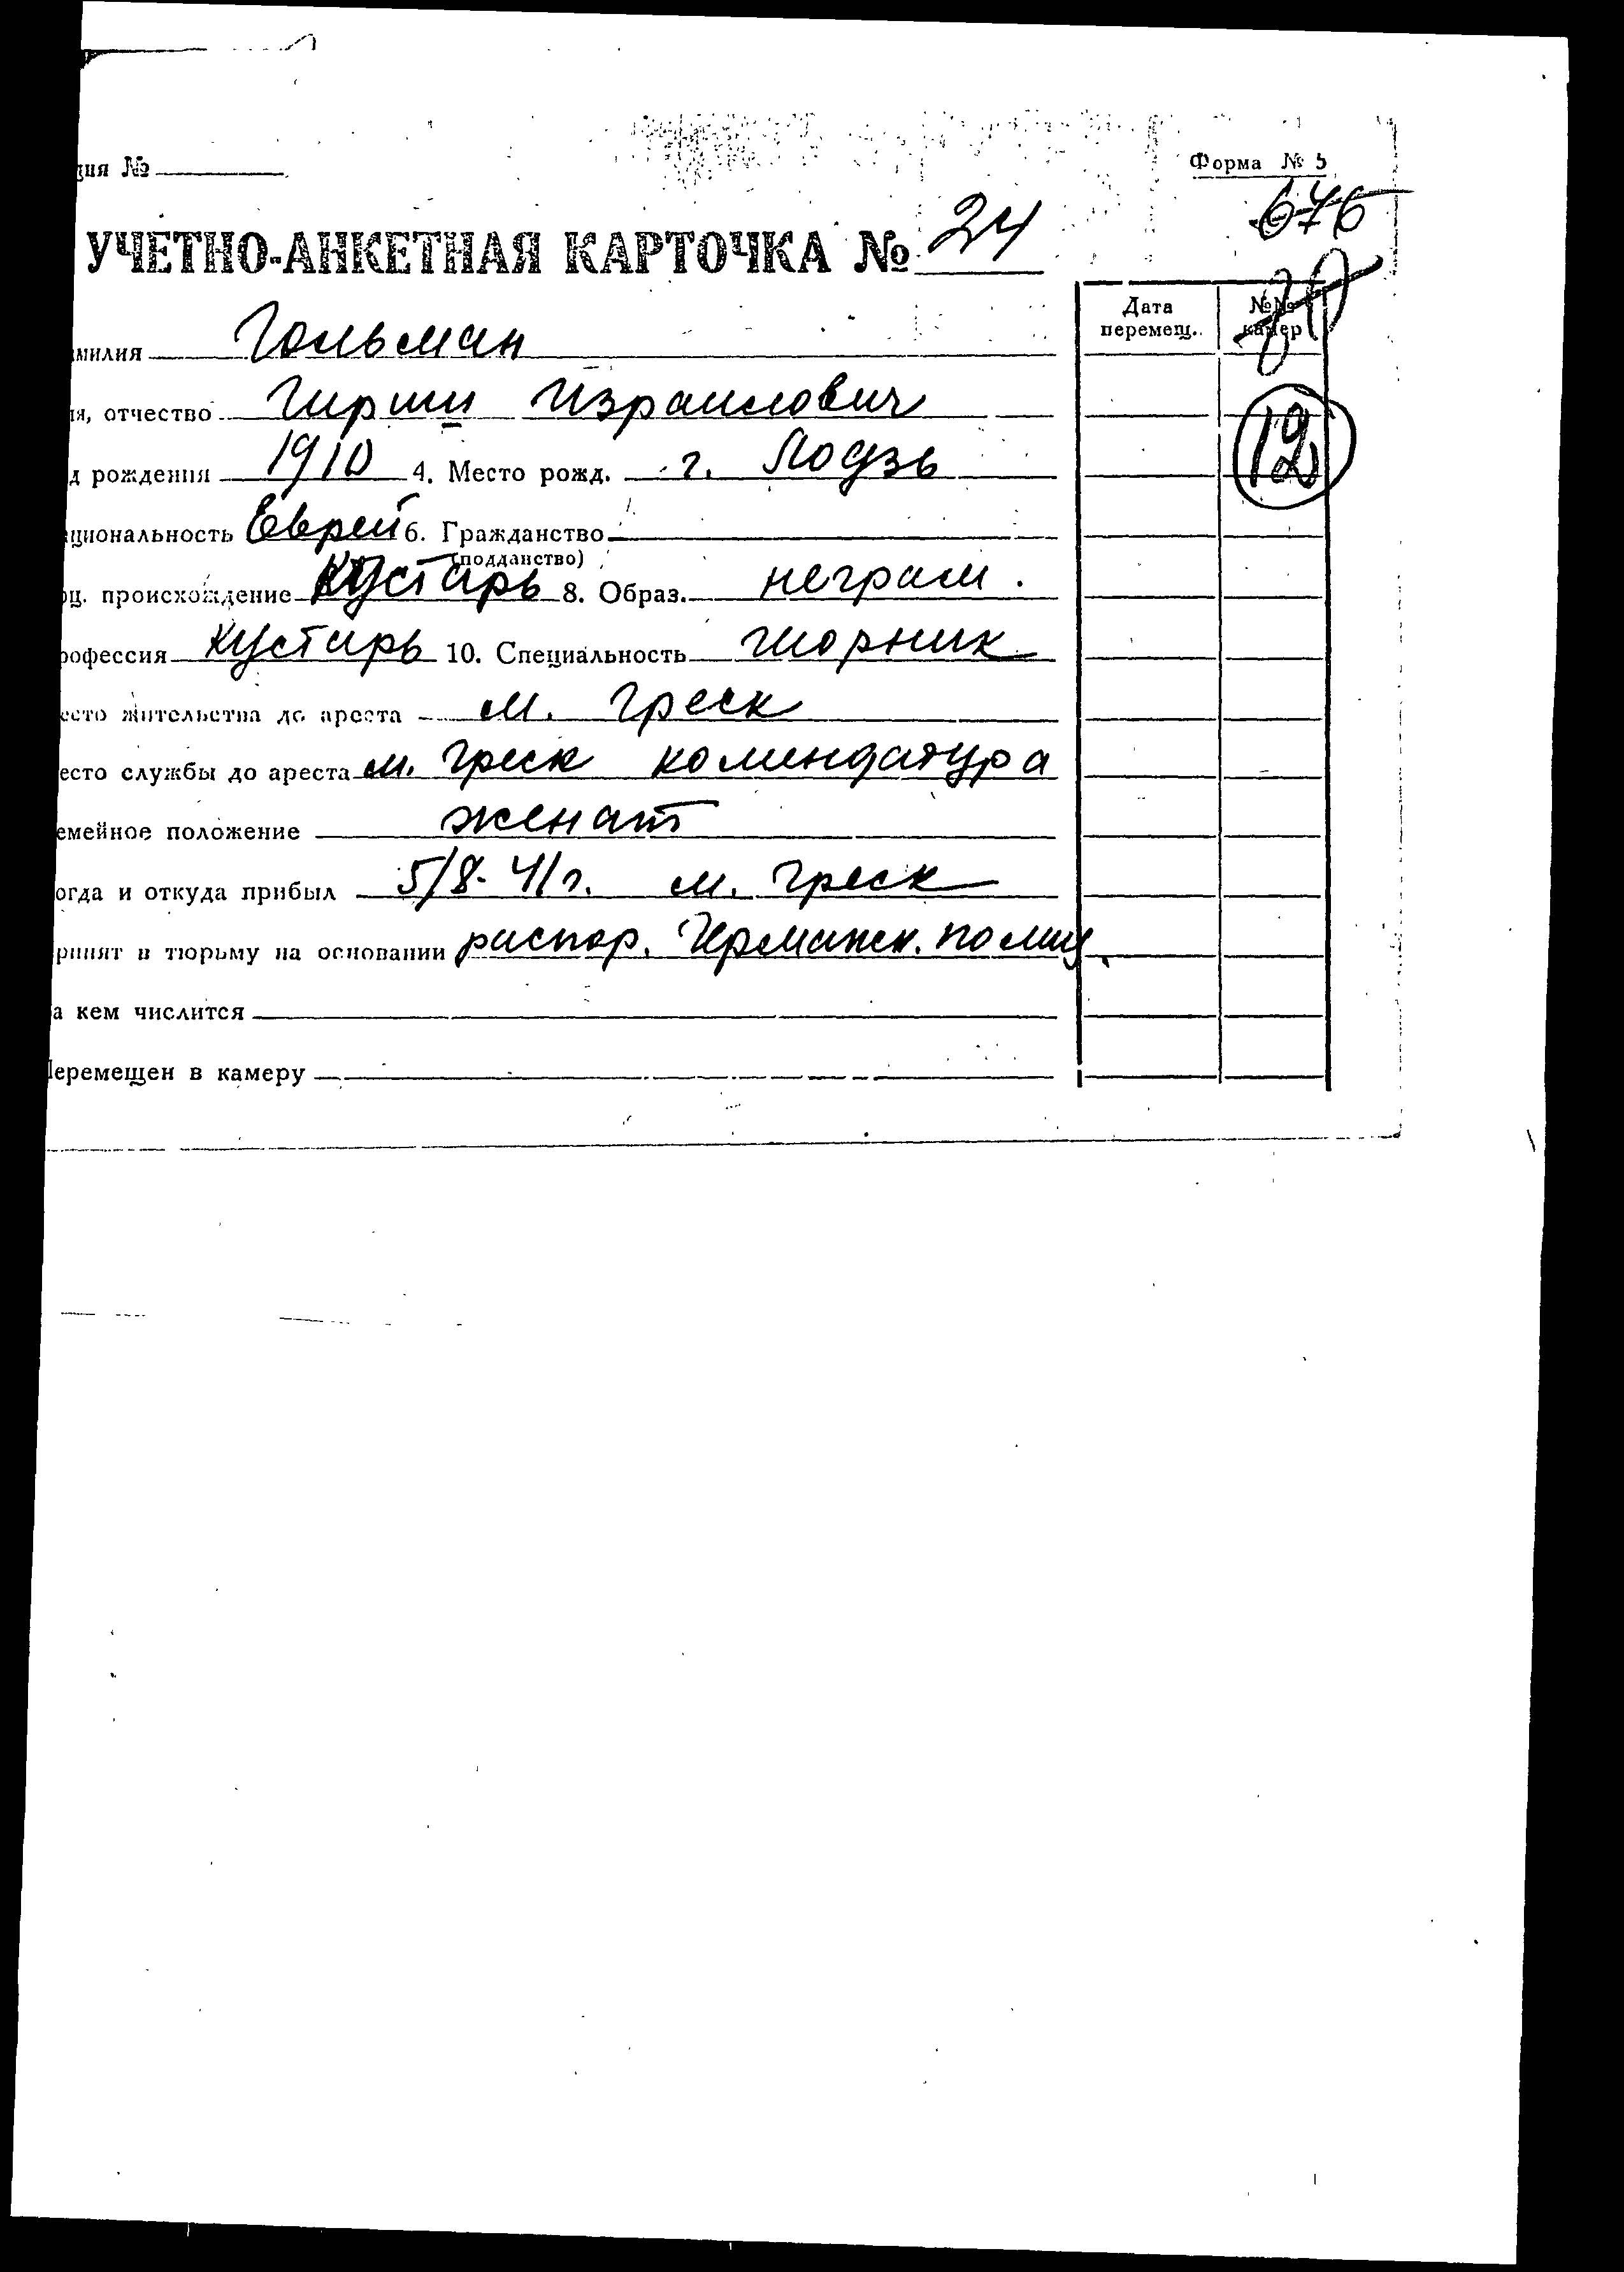 ция № Форма № 5
676
УЧЕТНО-АНКЕТНАЯ КАРТОЧКА № 24
Дата перемещ. №№ камер
милия Гольман
я, отчество Гирш Израилович
12
д рождения 1910 4. Место рожд. г. Лодзь
циональность Еврей 6. Гражданство
(подданство)
оц. происхождение Кустарь 8. Образ. неграм.
рофессия кустарь 10. Специальность шорник
есто жительства до ареста м. Греск
есто службы до ареста м. Греск комендатура
емейное положение женат
огда и откуда прибыл 5/8-41г. м. Греск
ринят в тюрьму на основании распор. Германск. полиц.
а кем числится
Перемещен в камеру